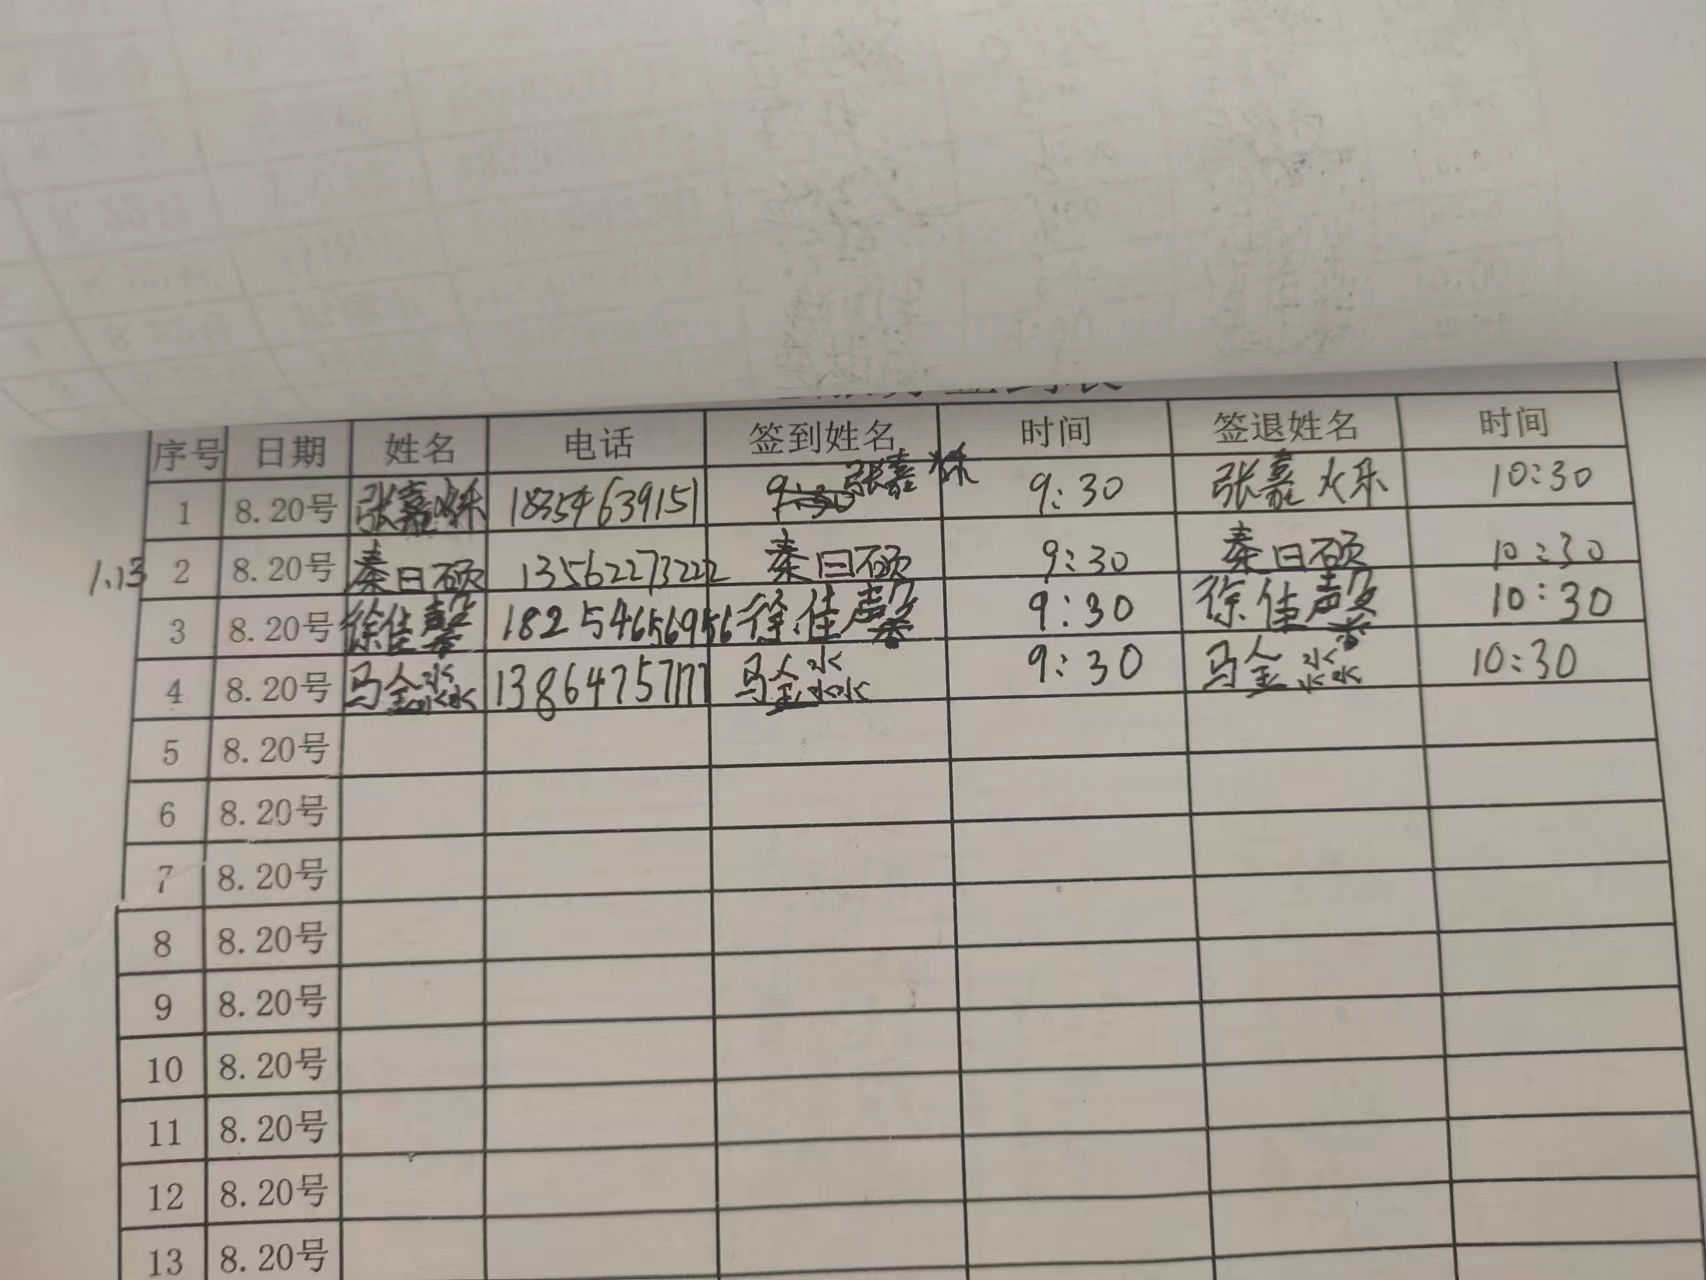 序号 日期 姓名 电话 签到姓名 时间 签退姓名 时间
1 8.20号 张嘉烁 18354639151 张嘉烁 9:30 张嘉烁 10:30
1.13 2 8.20号 秦日硕 13562273222 秦日硕 9:30 秦日硕 10:30
3 8.20号 徐佳馨 18254656956 徐佳馨 9:30 徐佳馨 10:30
4 8.20号 马金淼 13864757177 马金淼 9:30 马金淼 10:30
5 8.20号
6 8.20号
7 8.20号
8 8.20号
9 8.20号
10 8.20号
11 8.20号
12 8.20号
13 8.20号